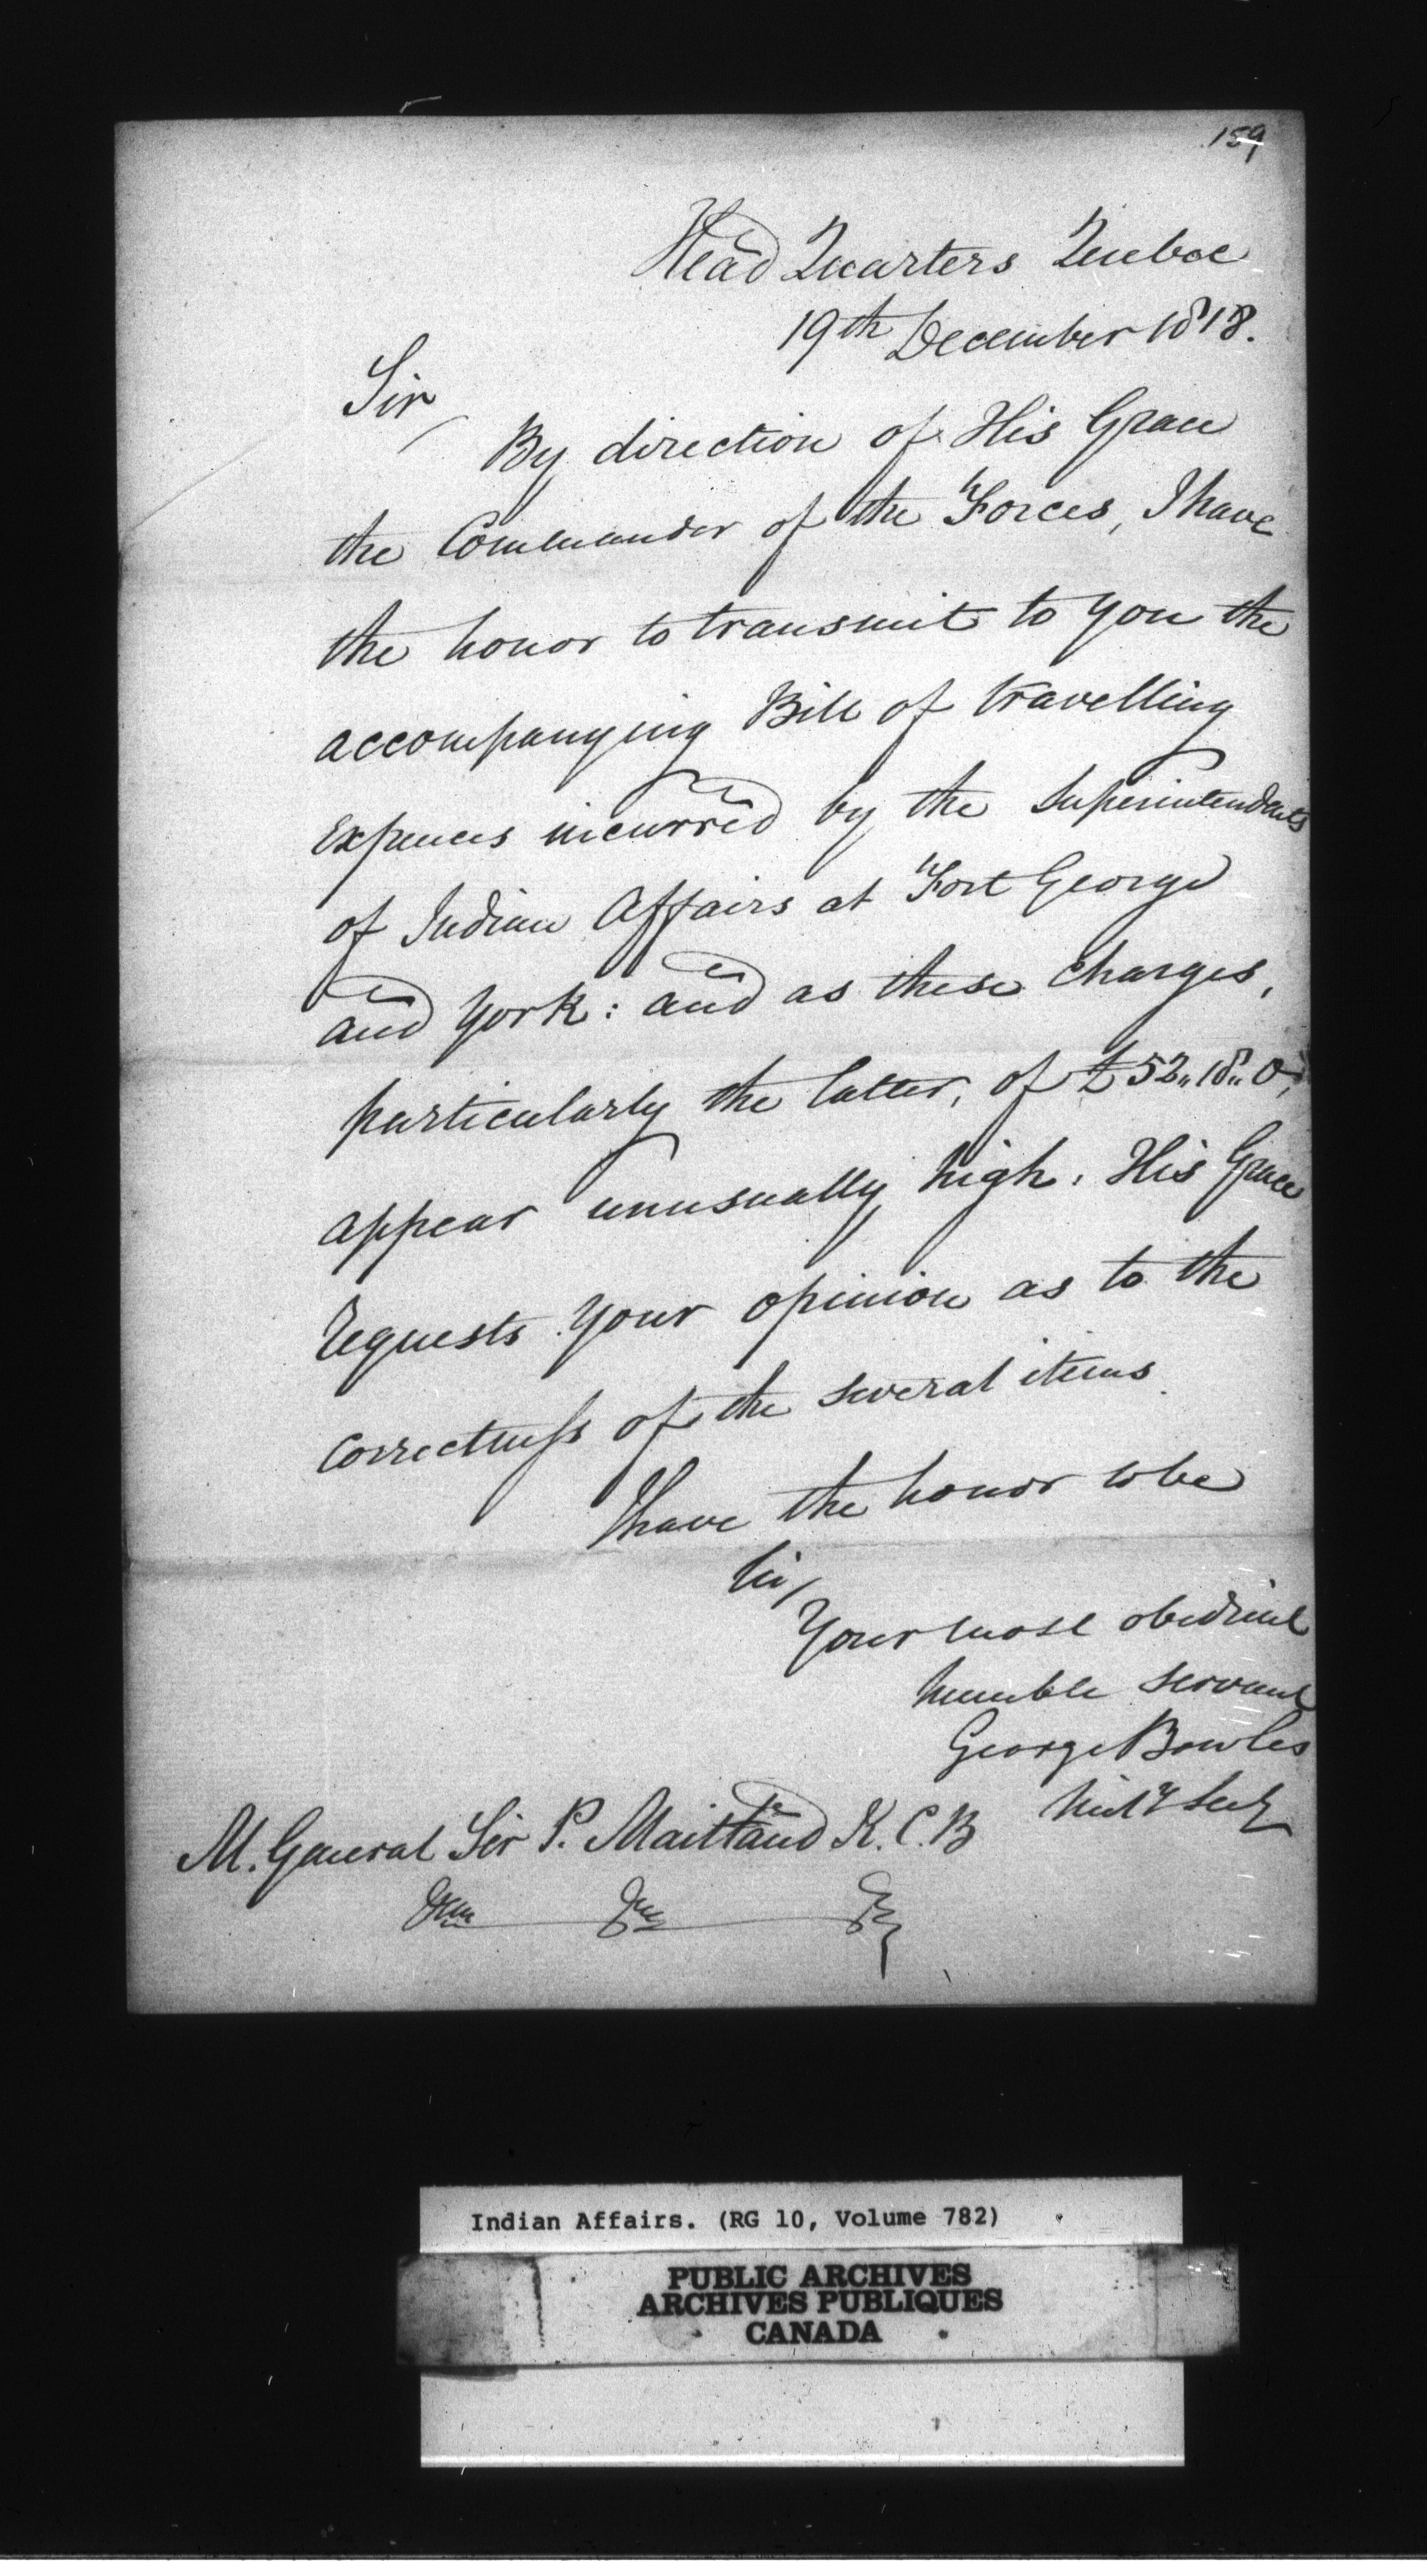 159
Head Quarters Quebec
19th December 1818.
Sir
By direction of His Grace
the Commander of the Forces, I have
the honor to transmit to you the
accompanying Bill of travelling
expences incurred by the Superintendants
of Indian Affairs at Fort George
and York: and as these charges,
particularly the latter, of £52,,18,,0,
appear unusually high, His Grace
requests your opinion as to the
correctness of the several items.
I have the honor to be
Sir,
Your most obedient
humble servant
George Bowles
Mily Secy
M. General Sir P. Maitland K.C.B
Indian Affairs. (RG 10, Volume 782)
PUBLIC ARCHIVES
ARCHIVES PUBLIQUES
CANADA